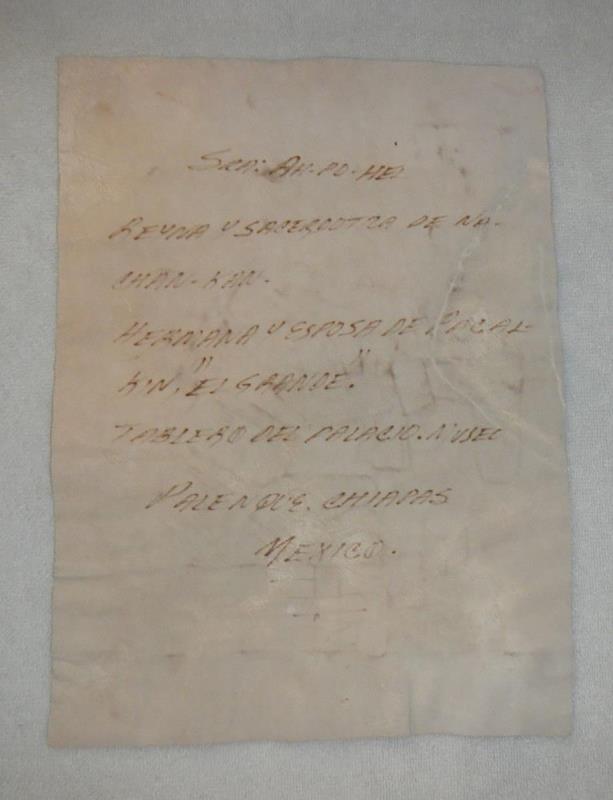 Sra: AH-PO-HEL
REYNA Y SACERDOTZA DE NA-
CHAN-KAN.
HERMANA Y ESPOSA DE PACAL-
KIN, "EL GRANDE."
TABLERO DEL PALACIO. MUSEO
PALENQUE. CHIAPAS
MEXICO.